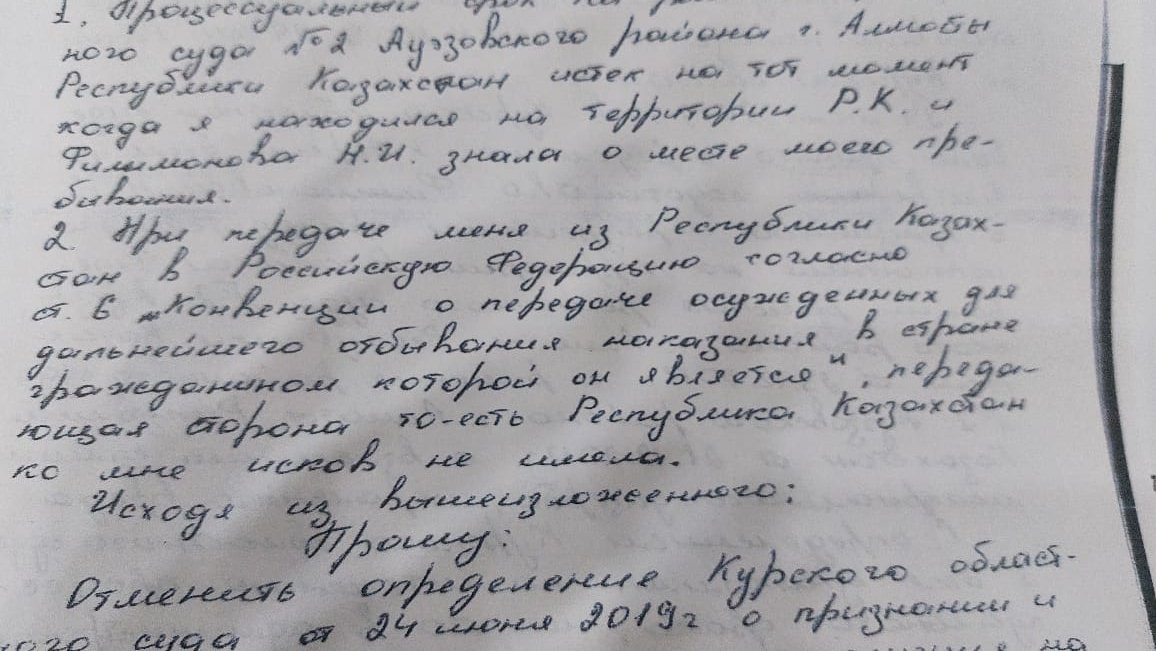 1. Процессуальный срок на
ного суда №2 Ауэзовского района г. Алмобы
Республики Казахстан истек на тот момент
когда я находился на территории Р.К. и
Филимонова Н.И. знала о месте моего пре-
бывания.
2. При передаче меня из Республики Казах-
стан в Российскую Федерацию согласно
ст. 6 „Конвенции о передаче осужденных для
дальнейшего отбывания наказания в стране
гражданином которой он является", переда-
ющая сторона то-есть Республика Казахстан
ко мне исков не имела.
Исходя из вышеизложенного:
Прошу:
Отменить определение Курского област-
ного суда от 24 июня 2019г о признании и
на